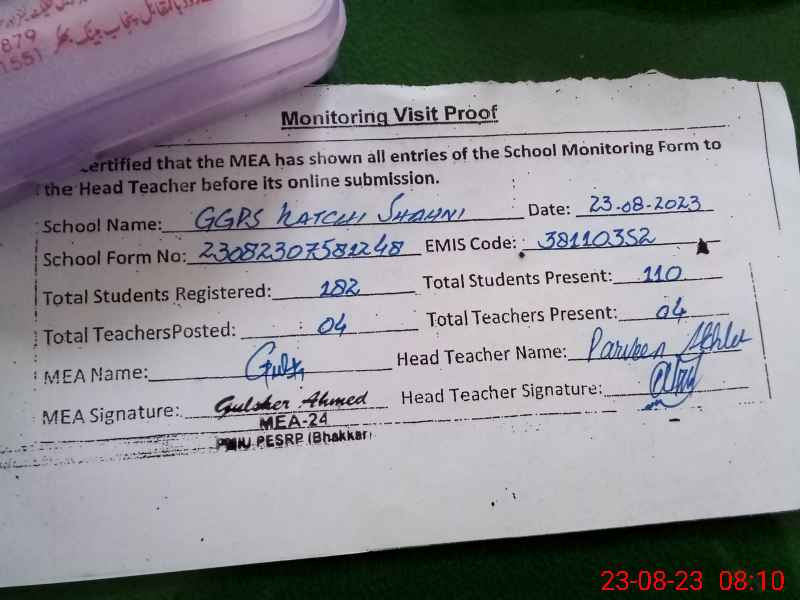 879
1551
Monitoring Visit Proof
ertified that the MEA has shown all entries of the School Monitoring Form to
the Head Teacher before its online submission.
School Name: GGPS KATCHI SHAHNI Date: 23-08-2023
School Form No: 23082307581248 EMIS Code: 38110352
Total Students Registered: 182 Total Students Present: 110
Total TeachersPosted: 04 Total Teachers Present: 04
MEA Name: Head Teacher Name: Parveen Akhter
MEA Signature: Gulsher Ahmed Head Teacher Signature:
MEA-24
PMIU PESRP (Bhakkar)
23-08-23 08:10